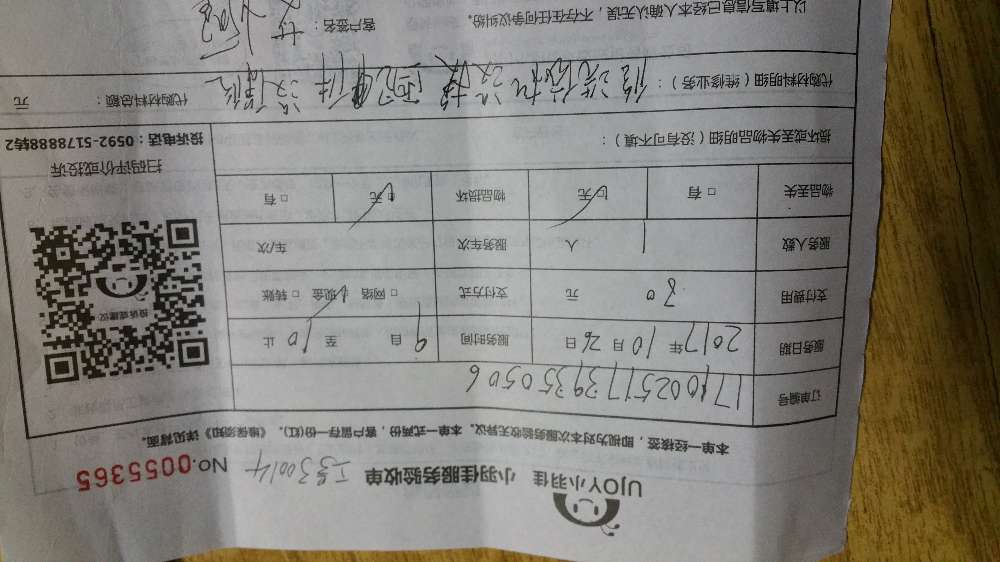 UJOY小羽佳 小羽佳服务验收单 工号30014 No.0055365
本单一经核签，即视为对本次服务验收无异议。本单一式两份，客户存留一份(红)。《维保须知》详见背面。
订单编号
服务日期 2017年10月26日 服务时间 9自 至10止
支付费用 80元 支付方式 □网络 现金 □转账
服务人数 1人 服务车次 车/次
物品丢失 □有 无 物品损坏 无 □有
投诉或建议
扫码评价或投诉
投诉电话：0592-5178888转2
损坏或丢失物品明细（没有可不填）：
代购材料明细（维修业务）： 代购材料总额： 元
以上填写信息已经本人确认无误，不存在任何争议纠纷。 客户签名：